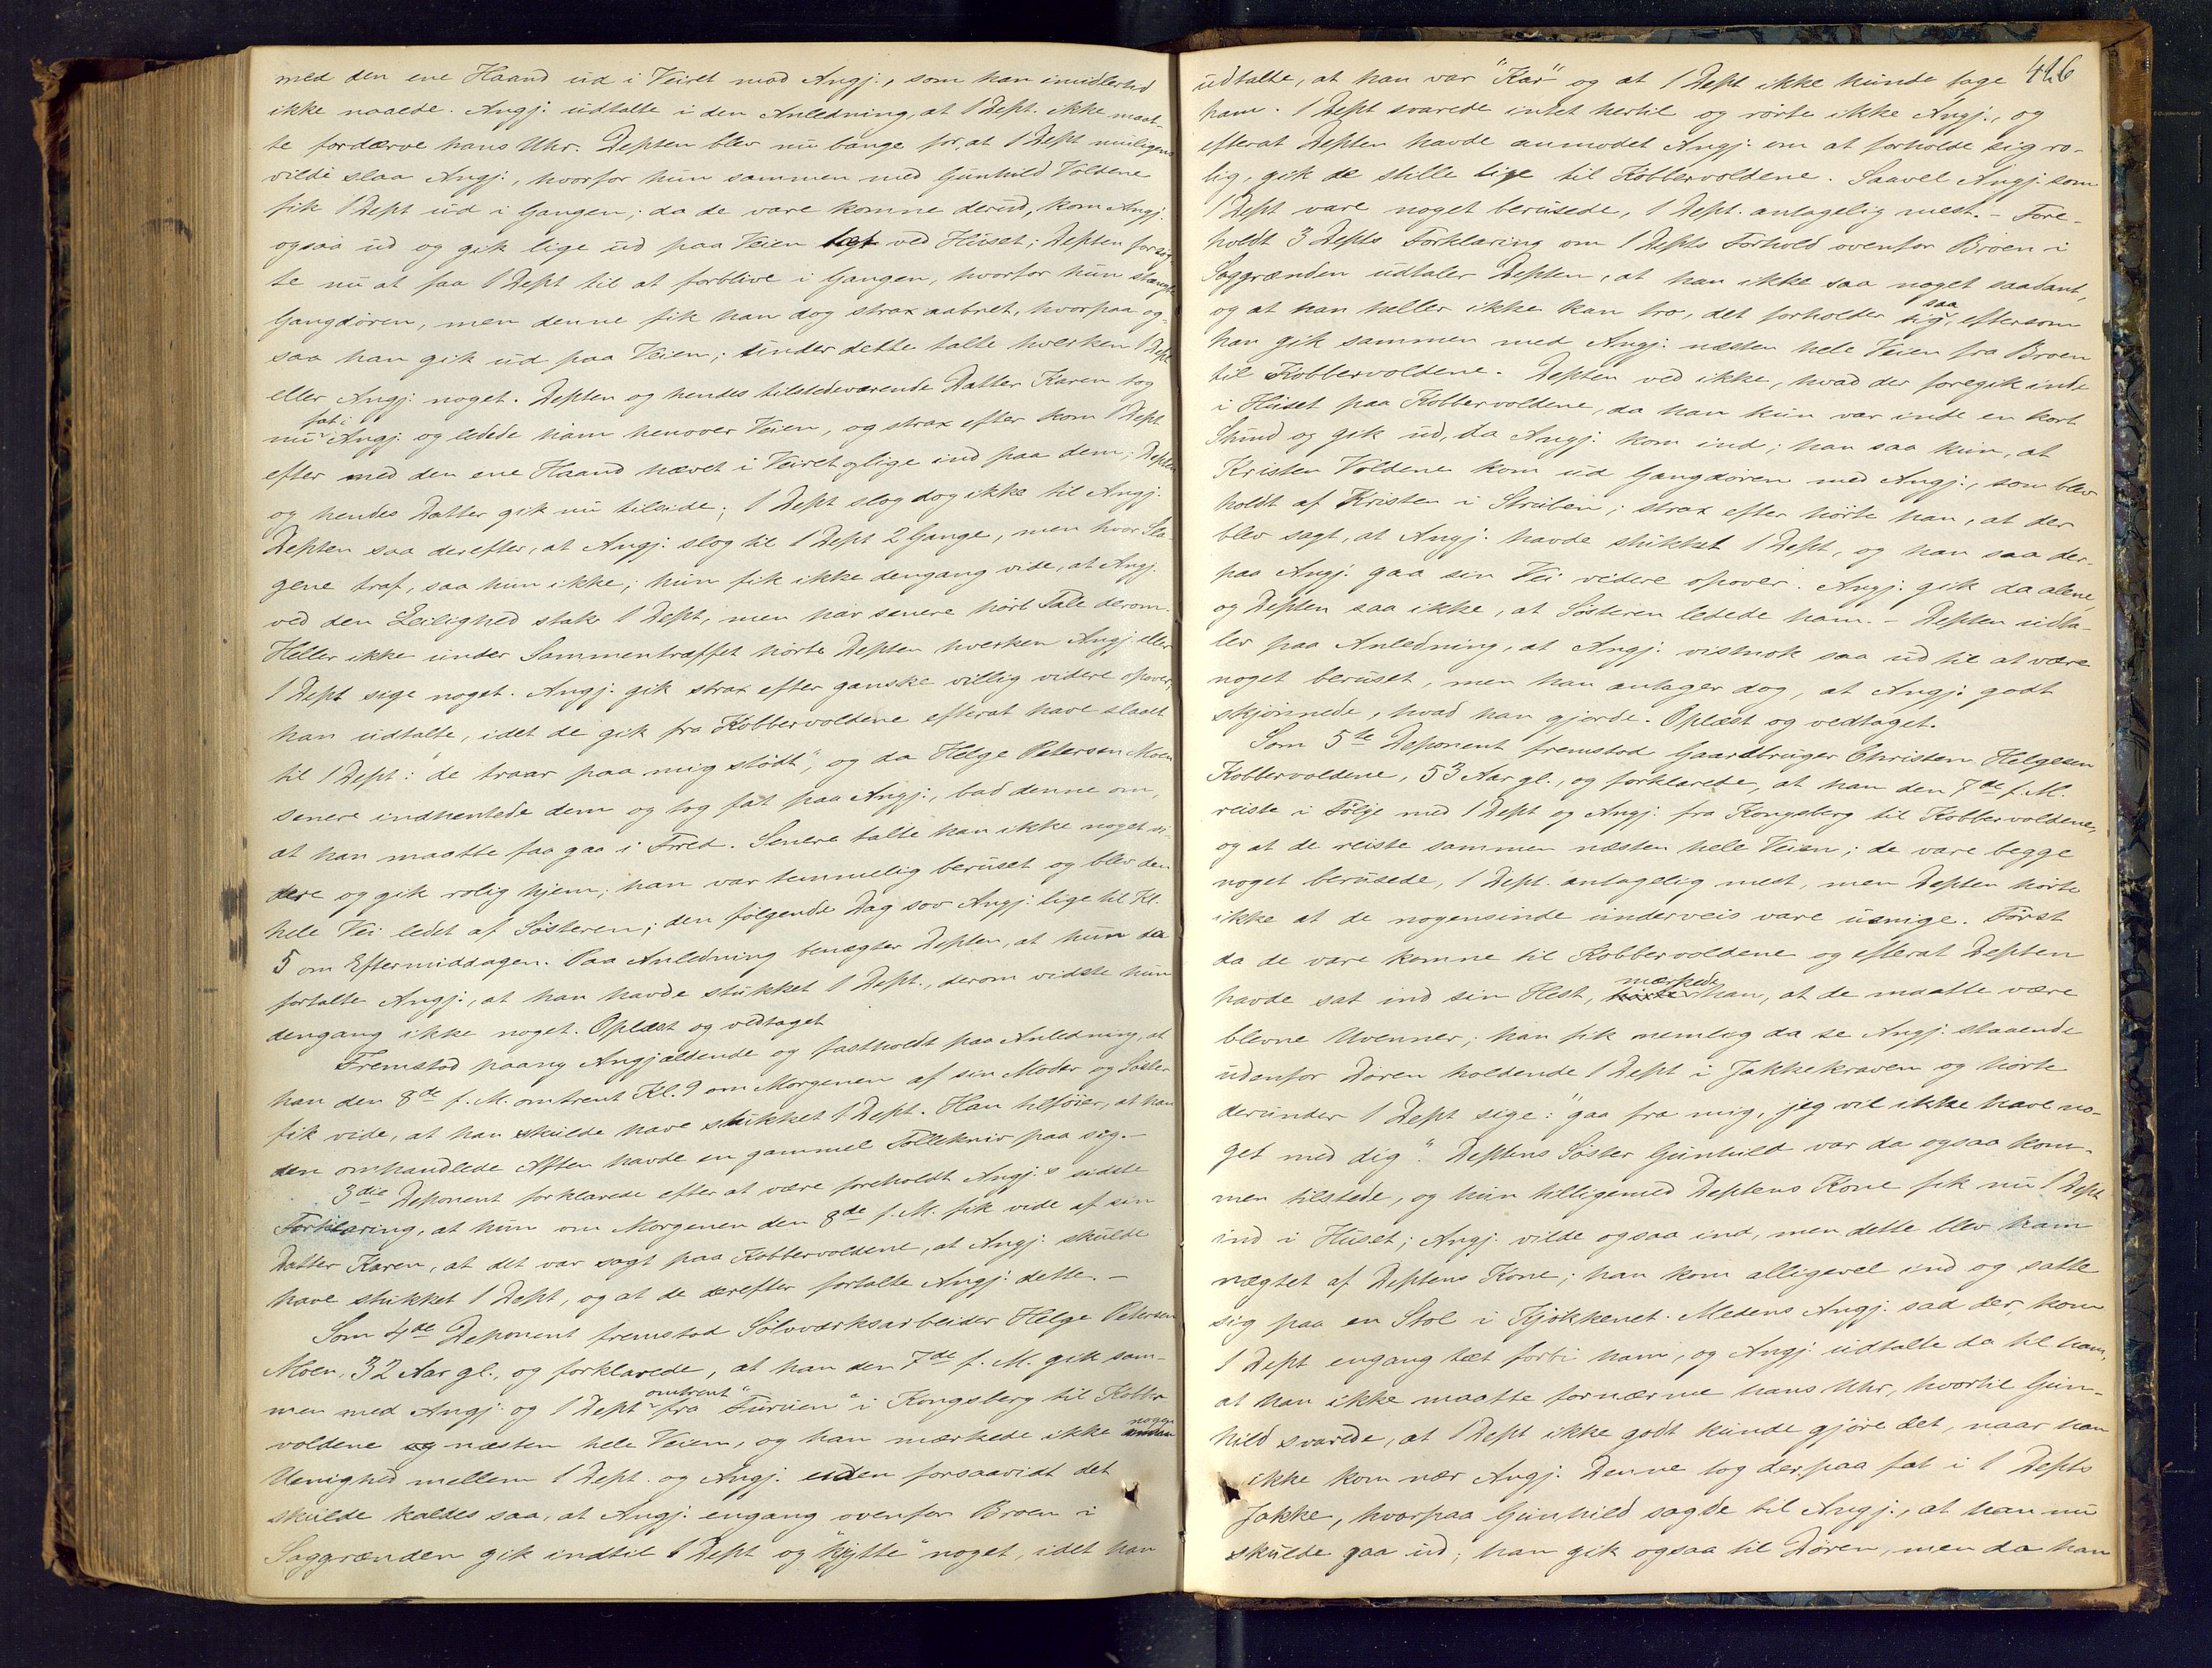 med den ene Haand ud i Veiret mod Angj., som han imidlertid
ikke naaede. Angj. udtalte i den Anledning, at 1 Dept. ikke maat-
te fordærve hans Uhr. Depten blev nu bange for, at 1 Dept muligens
vilde slaa Angj., hvorfor hun sammen med Gunhild Voldene
fik 1 Dept ud i Gangen; da de vare komne derud, kom Angj.
ogsaa ud og gik lige ud paa Veien tæt ved Huset; Depten forsøg-
te nu at faa 1 Dept til at forblive i Gangen, hvorfor hun stængte
Gangdøren, men denne fik han dog strax aabnet, hvorpaa og-
saa han gik ud paa Veien; under dette talte hverken 1 Dept
eller Angj. noget. Depten og hendes tilstedeværende Datter Karen tog
nu fat i Angj. og ledede ham henover Veien, og strax efter kom 1 Dept
efter med den ene Haand hævet i Veiret og lige ind paa dem; Depten
og hendes Datter gik nu tilside; 1 Dept slog dog ikke til Angj.
Depten saa derefter, at Angj. slog til 1 Dept 2 Gange, men hvor Sla-
gene traf, saa hun ikke; hun fik ikke dengang vide, at Angj.
ved den Leilighed stak 1 Dept, men har senere hørt Tale derom.
Heller ikke under Sammentræffet hørte Depten hverken Angj. eller
1 Dept sige noget. Angj. gik strax efter ganske villig videre opover;
han udtalte, idet de gik fra Kobbervoldene efterat have slaaet
til 1 Dept: "de traar paa mig stødt", og da Helge Petersen Moen
senere indhentede dem og tog fat paa Angj., bad denne om,
at han maatte faa gaa i Fred. Senere talte han ikke noget vi-
dere og gik rolig hjem; han var temmelig beruset og blev den
hele Vei ledet af Søsteren; den følgende Dag sov Angj. lige til Kl.
5 om Eftermiddagen. Paa Anledning benægter Depten, at hun da
fortalte Angj., at han havde stukket 1 Dept., derom vidste hun
dengang ikke noget. Oplæst og vedtaget
Fremstod paany Angjældende og fastholdt paa Anledning, at
han den 8de f. M. omtrent Kl. 9 om Morgenen af sin Moder og Søster
fik vide, at han skulde have stukket 1 Dept. Han tilføier, at han
den omhandlede Aften havde en gammel Tollekniv paa sig. –
3die Deponent forklarede efter at være foreholdt Angj.s sidste
Forklaring, at hun om Morgenen den 8de f. M. fik vide af sin
Datter Karen, at det var sagt paa Kobbervoldene, at Angj. skulde
have stukket 1 Dept, og at de derefter fortalte Angj. dette. –
Som 4de Deponent fremstod Sølvværksarbeider Helge Petersen
Moen, 32 Aar gl., og forklarede, at han den 7de f. M. gik sam-
men med Angj. og 1 Dept omtrent fra "Furuen" i Kongsberg til Kobber-
voldene og næsten hele Veien, og han mærkede ikke nogen
Uenighed mellem 1 Dept. og Angj. uden forsaavidt det
skulde kaldes saa, at Angj. engang ovenfor Broen i
Saggrænden gik indtil 1 Dept og "kytte" noget, idet han
426
udtalte, at han var "Kar" og at 1 Dept ikke kunde tage
ham. 1 Dept svarede intet hertil og rørte ikke Angj., og
efterat Depten havde anmodet Angj. om at forholde sig ro-
lig, gik de stille lige til Kobbervoldene. Saavel Angj. som
1 Dept vare noget berusede, 1 Dept. antagelig mest. – Fore-
holdt 3 Depts Forklaring om 1 Depts Forhold ovenfor Broen i
Saggrænden udtaler Depten, at han ikke saa noget saadant,
og at han heller ikke kan tro, det forholder sig saa, eftersom
han gik sammen med Angj. næsten hele Veien fra Broen
til Kobbervoldene. Depten ved ikke, hvad der foregik inde
i Huset paa Kobbervoldene, da han kun var inde en kort
Stund og gik ud, da Angj. kom ind; han saa kun, at
Kristen Voldene kom ud Gangdøren med Angj., som blev
holdt af Kristen i Struben; strax efter hørte han, at der
blev sagt, at Angj. havde stukket 1 Dept, og han saa der-
paa Angj. gaa sin Vei videre opover. Angj. gik da alene,
og Depten saa ikke, at Søsteren ledede ham. – Depten udta-
ler paa Anledning, at Angj. vistnok saa ud til at være
noget beruset, men han antager dog, at Angj. godt
skjønnede, hvad han gjorde. Oplæst og vedtaget.
Som 5te Deponent fremstod Gaardbruger Christen Helgesen
Kobbervoldene, 53 Aar gl., og forklarede, at han den 7de f. M.
reiste i Følge med 1 Dept og Angj. fra Kongsberg til Kobbervoldene,
og at de reiste sammen næsten hele Veien; de vare begge
noget berusede, 1 Dept. antagelig mest, men Depten hørte
ikke at de nogensinde underveis vare uenige. Først
da de vare komne til Kobbervoldene og efterat Depten
havde sat ind sin Hest, hørte mærkede han, at de maatte være
blevne Uvenner; han fik nemlig da se Angj. staaende
udenfor Døren holdende 1 Dept i Jakkekraven og hørte
derunder 1 Dept sige: "gaa fra mig, jeg vil ikke have no-
get med dig". Deptens Søster Gunhild var da ogsaa kom-
men tilstede, og hun tilligemed Deptens Kone fik nu 1 Dept
ind i Huset; Angj. vilde ogsaa ind, men dette blev ham
nægtet af Deptens Kone; han kom alligevel ind og satte
sig paa en Stol i Kjøkkenet. Medens Angj. sad der, kom
1 Dept engang tæt forbi ham, og Angj. udtalte da til ham,
at han ikke maatte fornærme hans Uhr, hvortil Gun-
hild svarede, at 1 Dept ikke godt kunde gjøre det, naar han
ikke kom nær Angj. Denne tog derpaa fat i 1 Depts
Jakke, hvorpaa Gunhild sagde til Angj., at han nu
skulde gaa ud; han gik ogsaa til Døren, men da han